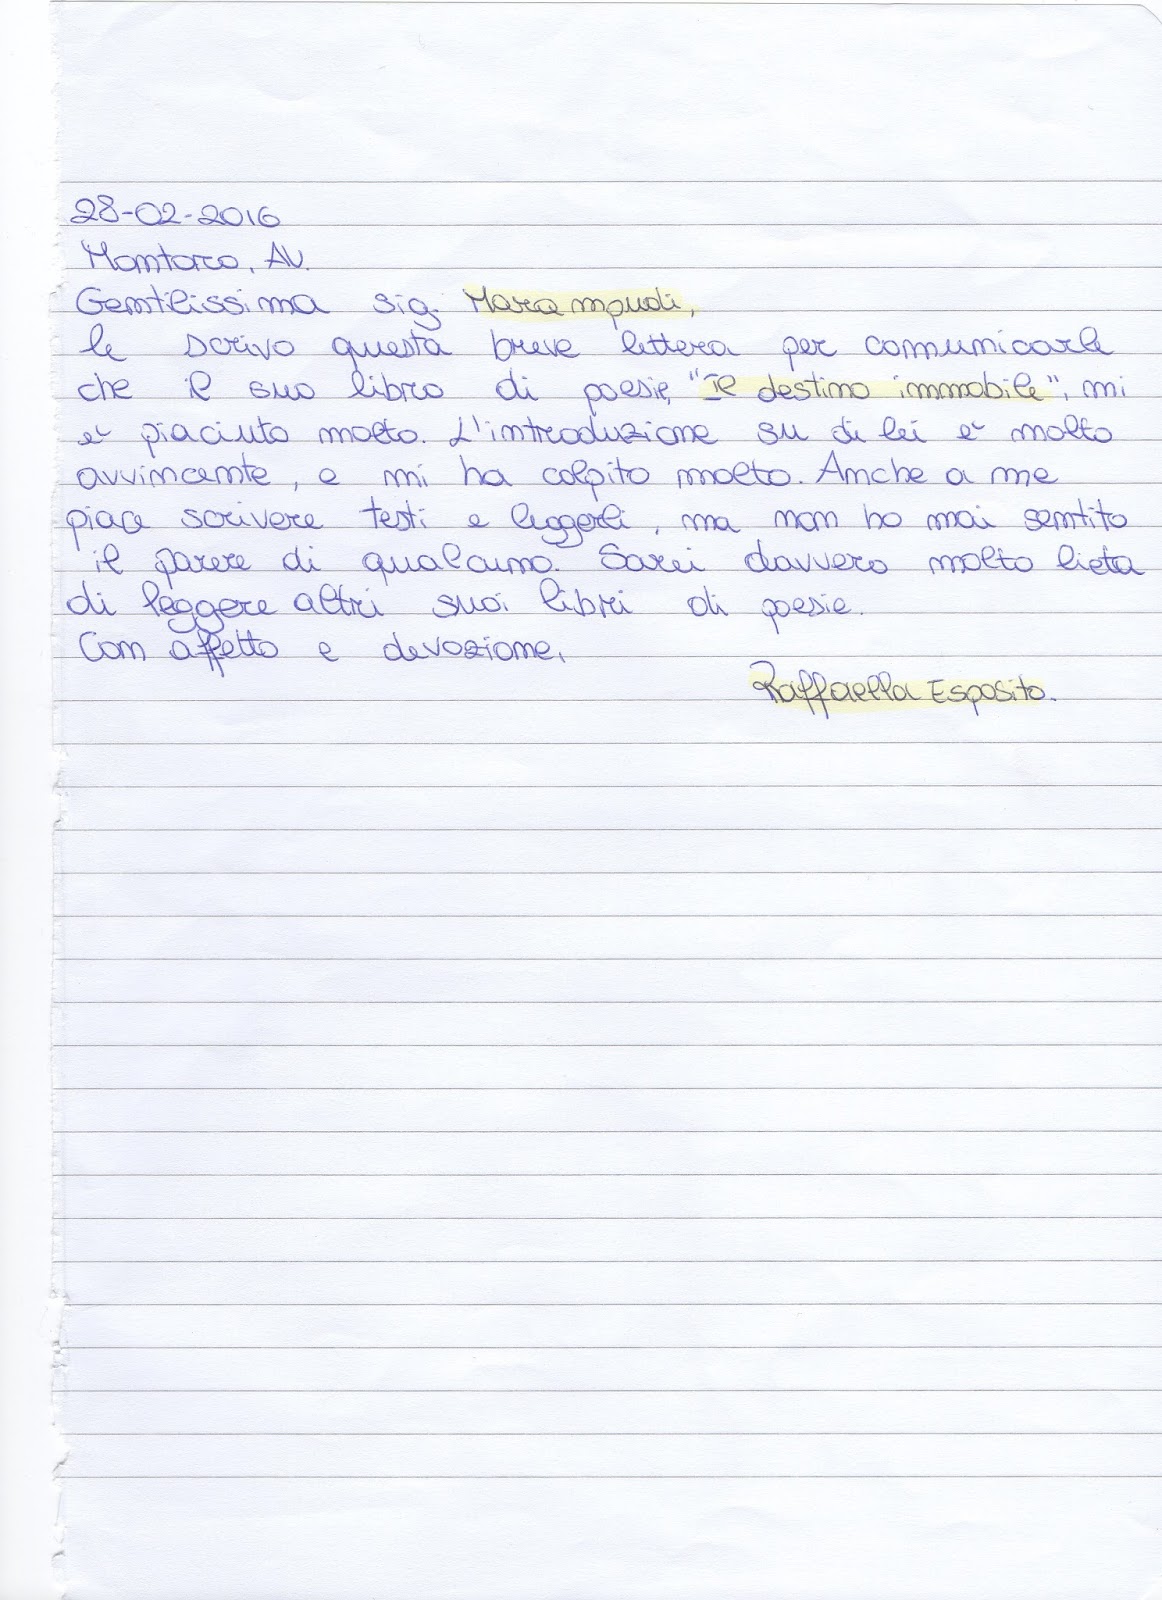 28-02-2016
Montoro, AV.
Gentilissima sig.
le scrivo questa breve lettera per comunicarle
che il suo libro di poesie, "Il destino immobile", mi
è piaciuto molto. L'introduzione su di lei è molto
avvincente, e mi ha colpito molto. Anche a me
piace scrivere testi e leggerli, ma non ho mai sentito
il parere di qualcuno. Sarei davvero molto lieta
di leggere altri suoi libri di poesie.
Con affetto e devozione,
Raffaella Esposito.